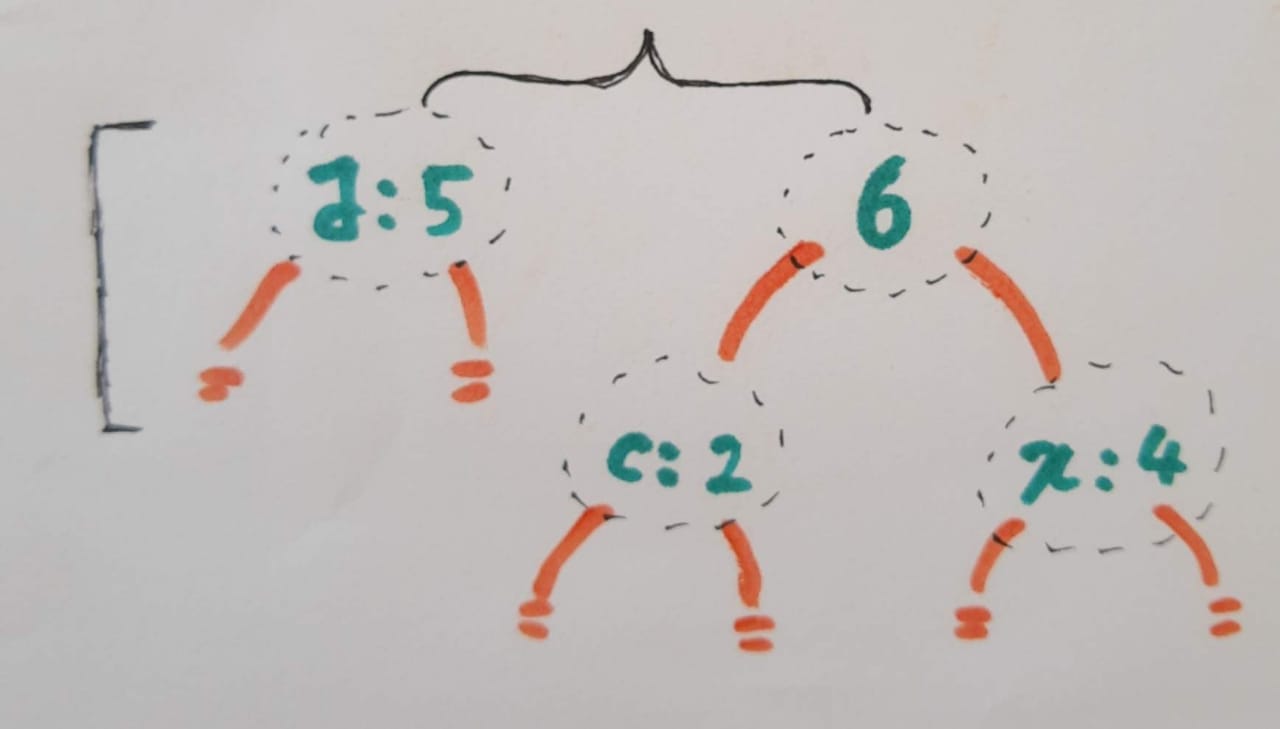 J:5 6
c:2 x:4